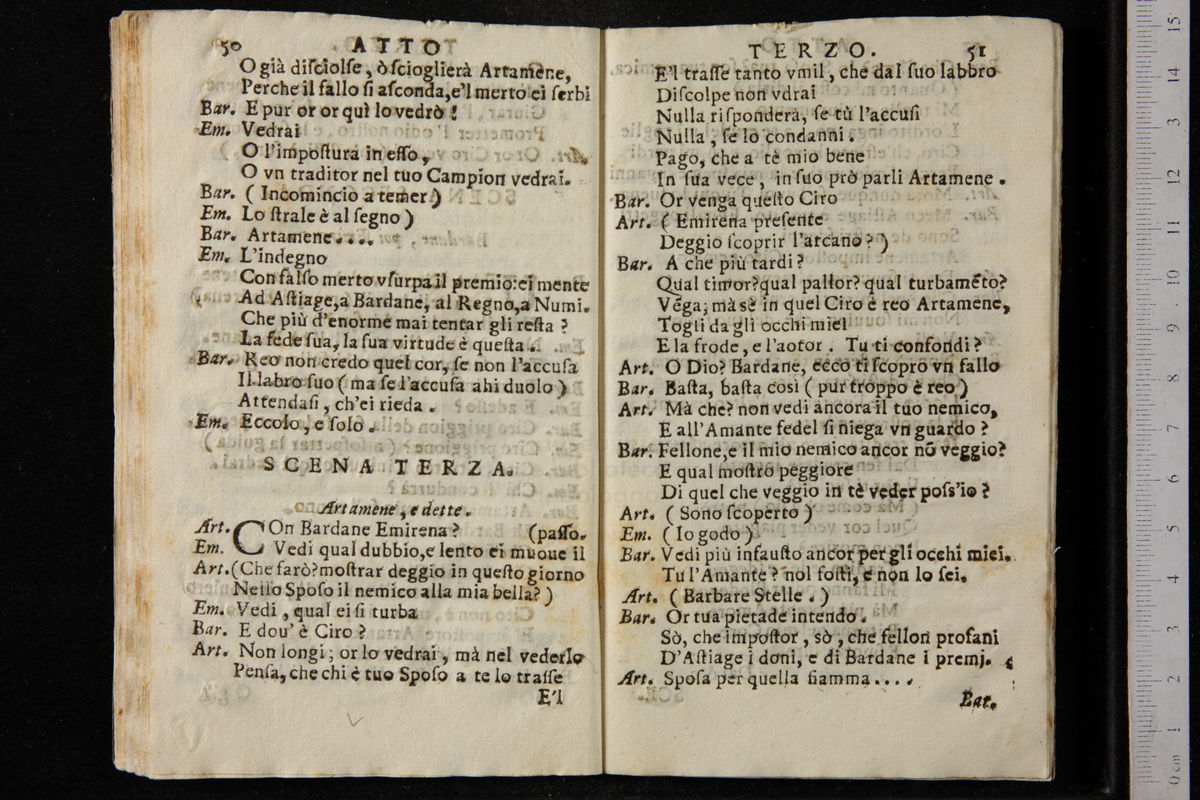 50 ATTO
O già disciolse, ò scioglierà Artamene,
Perche il fallo si asconda,e'l merto ei serbi
Bar. E pur or or quì lo vedrò!
Em. Vedrai
O l'impostura in esso,
O vn traditor nel tuo Campion vedrai.
Bar. ( Incomincio a temer )
Em. Lo strale è al segno )
Bar. Artamene....
Em. L'indegno
Con falso merto vsurpa il premio:ei mente
Ad Astiage,a Bardane, al Regno,a Numi.
Che più d'enorme mai tentar gli resta ?
La fede sua, la sua virtude è questa.
Bar. Reo non credo quel cor, se non l'accusa
Il labro suo ( ma se l'accusa ahi duolo )
Attendasi, ch'ei rieda.
Em. Eccolo, e solo.
SCENA TERZA.
Artamene, e dette.
Art. COn Bardane Emirena ? (passo.
Em. Vedi qual dubbio,e lento ei muoue il
Art.(Che farò?mostrar deggio in questo giorno
Nello Sposo il nemico alla mia bella? )
Em. Vedi, qual ei si turba
Bar. E dou' è Ciro ?
Art. Non longi; or lo vedrai, mà nel vederlo
Pensa, che chi è tuo Sposo a te lo trasse
E'l
TERZO. 51
E'l trasse tanto vmil, che dal suo labbro
Discolpe non vdrai
Nulla risponderà, se tù l'accusi
Nulla, se lo condanni.
Pago, che a tè mio bene
In sua vece, in suo prò parli Artamene.
Bar. Or venga questo Ciro
Art. ( Emirena presente
Deggio scoprir l'arcano ? )
Bar. A che più tardi ?
Qual timor?qual pallor? qual turbamēto?
Vēga; mà sè in quel Ciro è reo Artamene,
Togli da gli occhi miei
E la frode, e l'aotor. Tu ti confondi ?
Art. O Dio? Bardane, ecco ti scopro vn fallo
Bar. Basta, basta così ( pur troppo è reo )
Art. Mà che? non vedi ancora il tuo nemico,
E all'Amante fedel si niega vn guardo ?
Bar. Fellone,e il mio nemico ancor nō veggio?
E qual mostro peggiore
Di quel che veggio in tè veder poss'io ?
Art. ( Sono scoperto )
Em. ( Io godo )
Bar. Vedi più infausto ancor per gli occhi miei.
Tu l'Amante ? nol fosti, e non lo sei.
Art. ( Barbare Stelle. )
Bar. Or tua pietade intendo.
Sò, che impostor, sò, che fellon profani
D'Astiage i doni, e di Bardane i premj.
Art. Sposa per quella fiamma....
Bar.